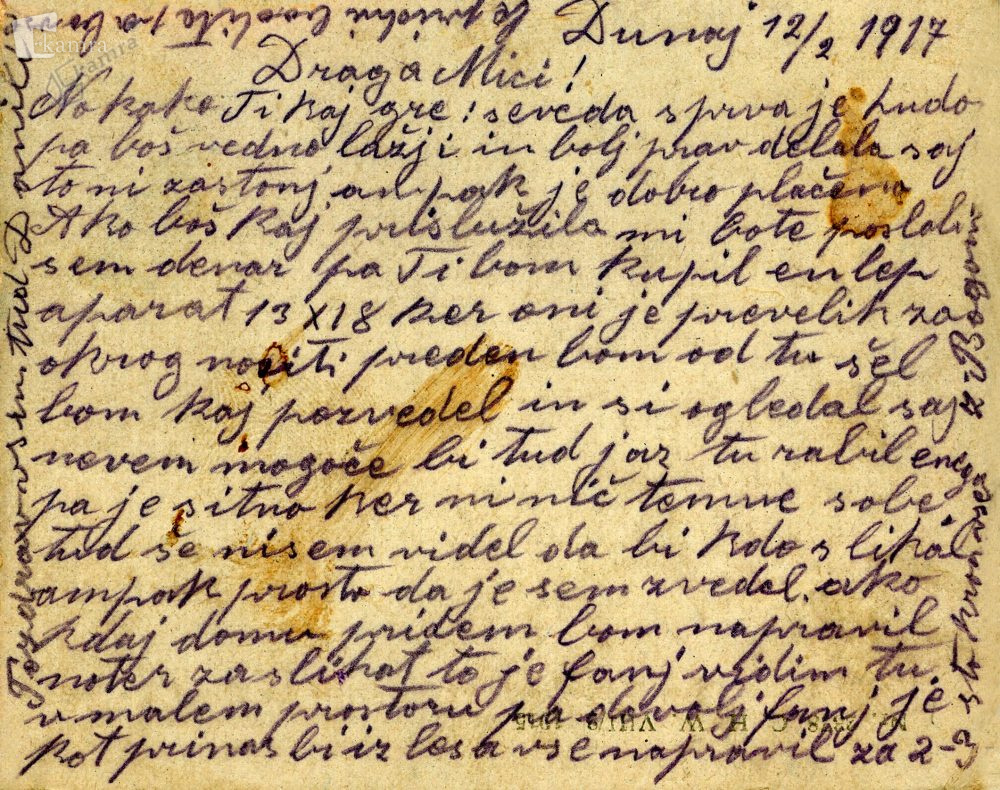 Dunaj 12/2 1917
Draga Mici!
No kako Ti kaj gre! seveda sprva je hudo
pa boš vedno lažji in bolj prav delala saj
to ni zastonj ampak je dobro plačeno
Ako boš kaj prislužila mi bote poslali
sem denar pa Ti bom kupil en lep
aparat 13x18 ker oni je prevelik za
okrog nositi preden bom od tu šel
bom kaj pozvedel in si ogledal saj
nevem mogoče bi tud jaz tu rabil enega
pa je sitno ker ni nič temne sobe
tud še nisem videl da bi kdo slikal
ampak prosto da je sem zvedel. ako
kdaj domu pridem bom napravil
noter za slikat to je fanj vidim tu
v malem prostoru pa dovolj fanj je
kot pri nas bi iz lesa vse napravil za 2-3
sto kron
z Bogom
Pozdrav vsem tud
kamra